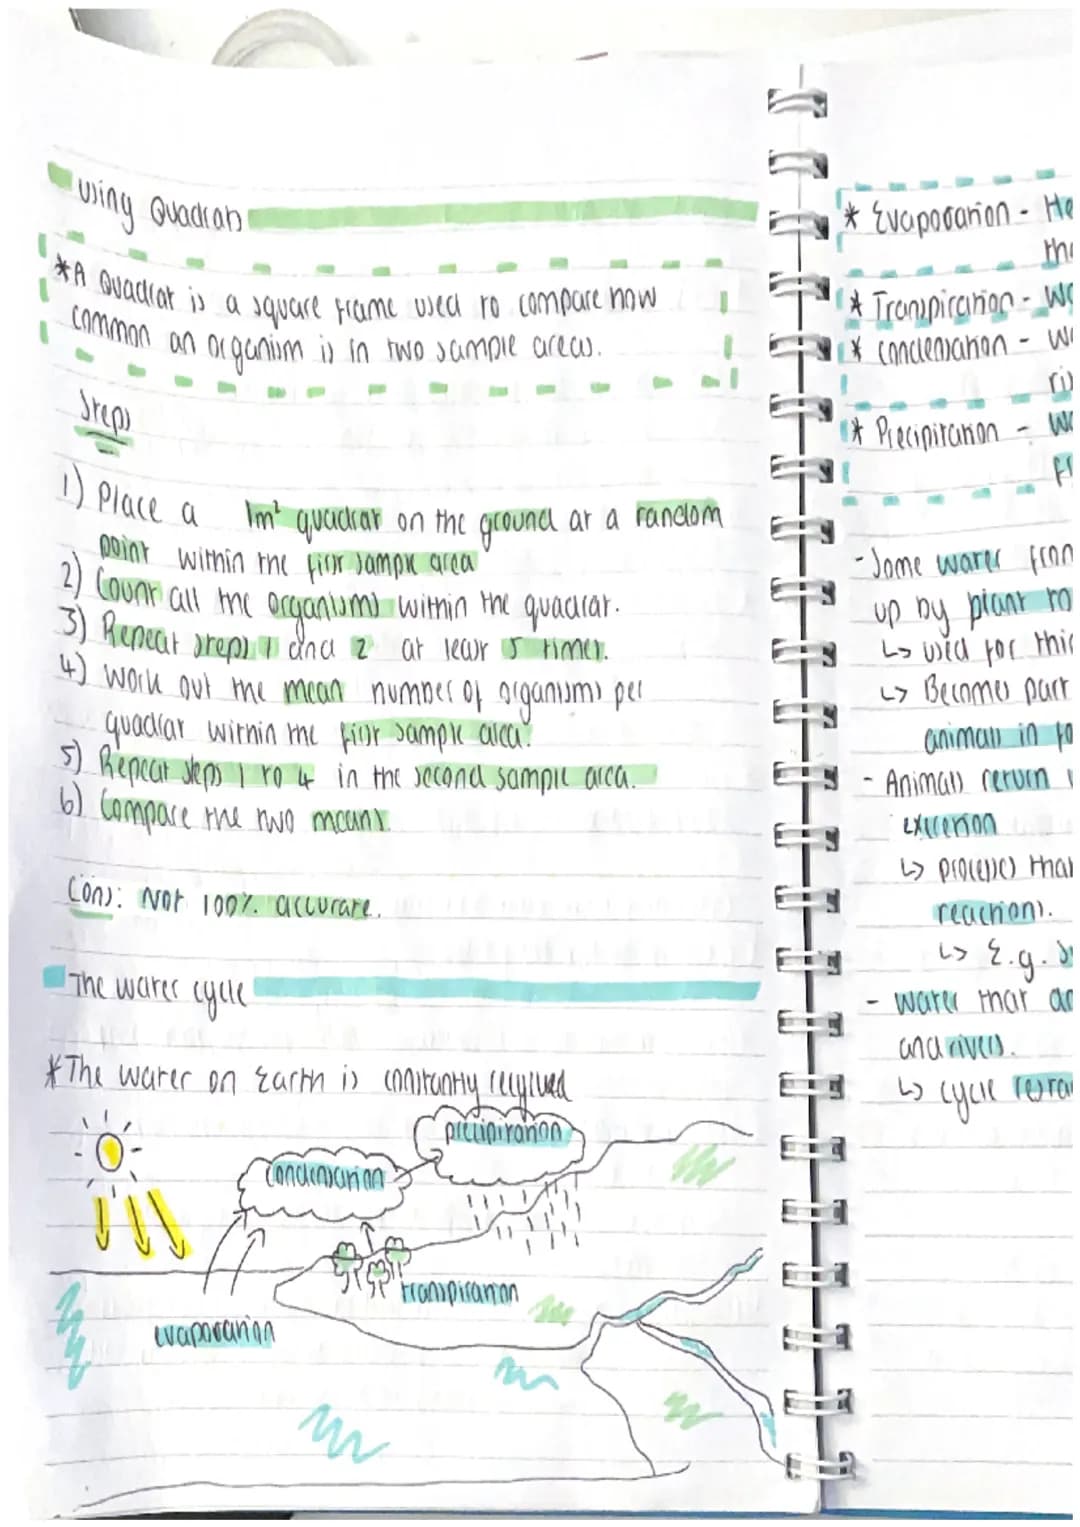 Using Quadrats
*A Quadrat is a square frame used to compare how
common an organism is in two sample areas.
Steps
1) Place a 1m² quadrat on the ground at a random
point within the first sample area
2) Count all the organisms within the quadrat.
3) Repeat steps 1 and 2 at least 5 times.
4) Work out the mean number of organisms per
quadrat within the first sample area.
5) Repeat steps 1 to 4 in the second sample area.
6) Compare the two means.
Cons: Not 100% accurate.
The water cycle
*The water on Earth is constantly recylced
precipitation
condensation
transpiration
evaporation
* Evaporation - He
tha
* Transpiration - Wa
* Condensation - Wa
ris
* Precipitation - Wa
- Some water from
up by plant ro
↳ used for this
↳ Becomes part
animals in fo
- Animals return
excretion
↳ processes that
reactions.
↳ E.g.
- Water that
and rivers.
↳ cycle resta